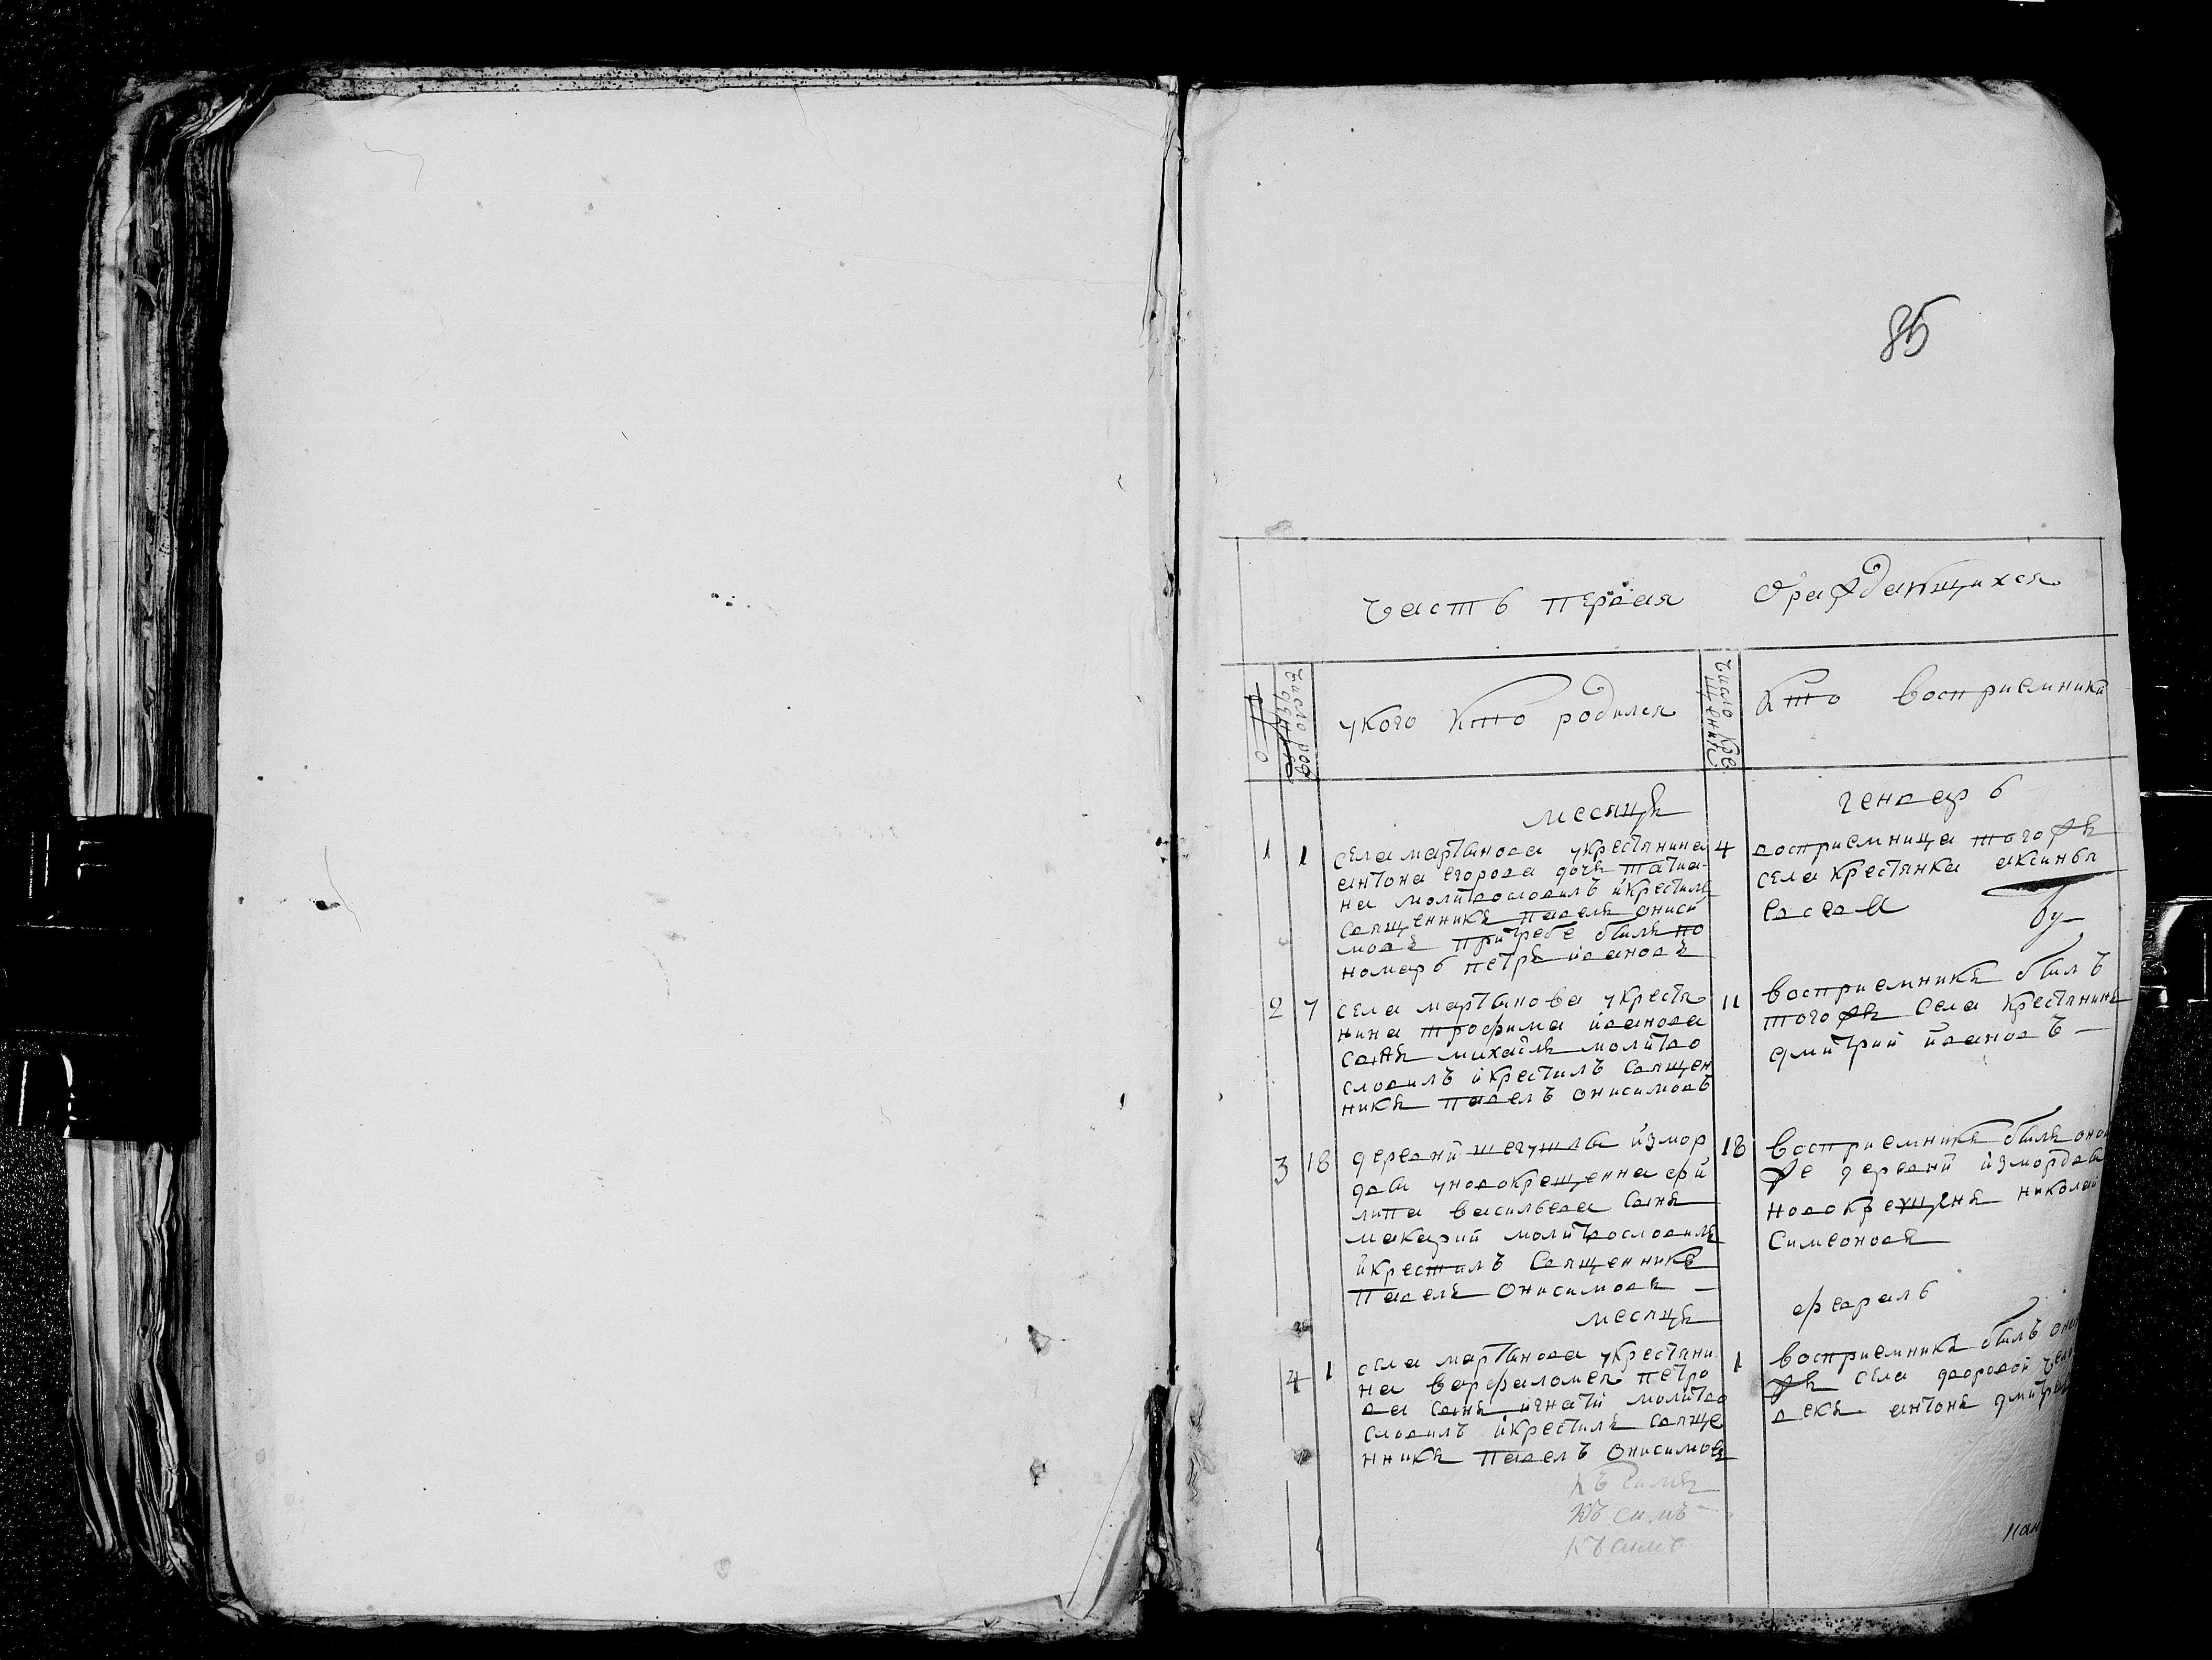 85
часть первая о раждающихся
число рождения
у кого кто родился
число крещения
кто восприемники
месяцъ генварь
1 1 села мартынова у крестьянина
антона егорова дочь татиа
на молитвословилъ и крестилъ
священникъ павелъ ониси
мовъ при требе былъ по
номарь петръ ивановъ
4 восприемница того жъ
села крестьянка аксинья
савева
2 7 села мартынова у крестья
нина трофима иванова
сынъ михайла молитво
словилъ и крестилъ священ
никъ павелъ онисимовъ
11 восприемникъ былъ
того жъ села крестьянинъ
дмитрий ивановъ
3 18 деревни из мор
двы у новокрещенна фи
липа васильева сынъ
макарий молитвословилъ
и крестилъ священникъ
павелъ онисимовъ
18 восприемникъ былъ оной
же деревни из мордвы
новокрещенъ николай
симеоновъ
месяцъ февраль
4 1 села мартынова у крестьяни
на варфаломея петро
ва сынъ игнати молитво
словилъ и крестилъ свяще
нникъ павелъ онисимовъ
1 восприемникъ былъ
жъ села дворовой чело
векъ антонъ
къ симъ
къ симъ
къ симъ